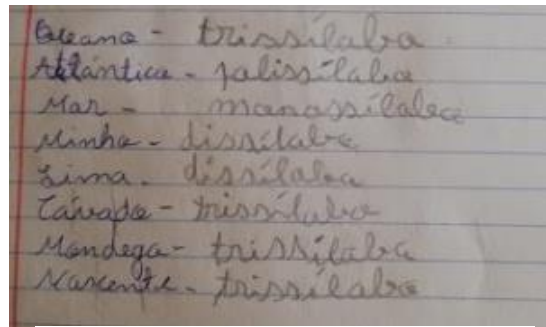 Oceano - trissílaba
Atlântica - polissílaba
Mar - monossílaba
Minho - dissílaba
Lima - dissílaba
Cávado - trissílaba
Mondego - trissílaba
Nascente - trissílaba